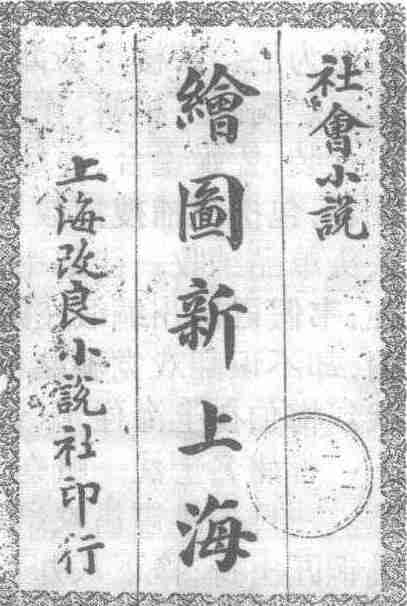 社會小説
繪圖新上海
上海改良小説社印行